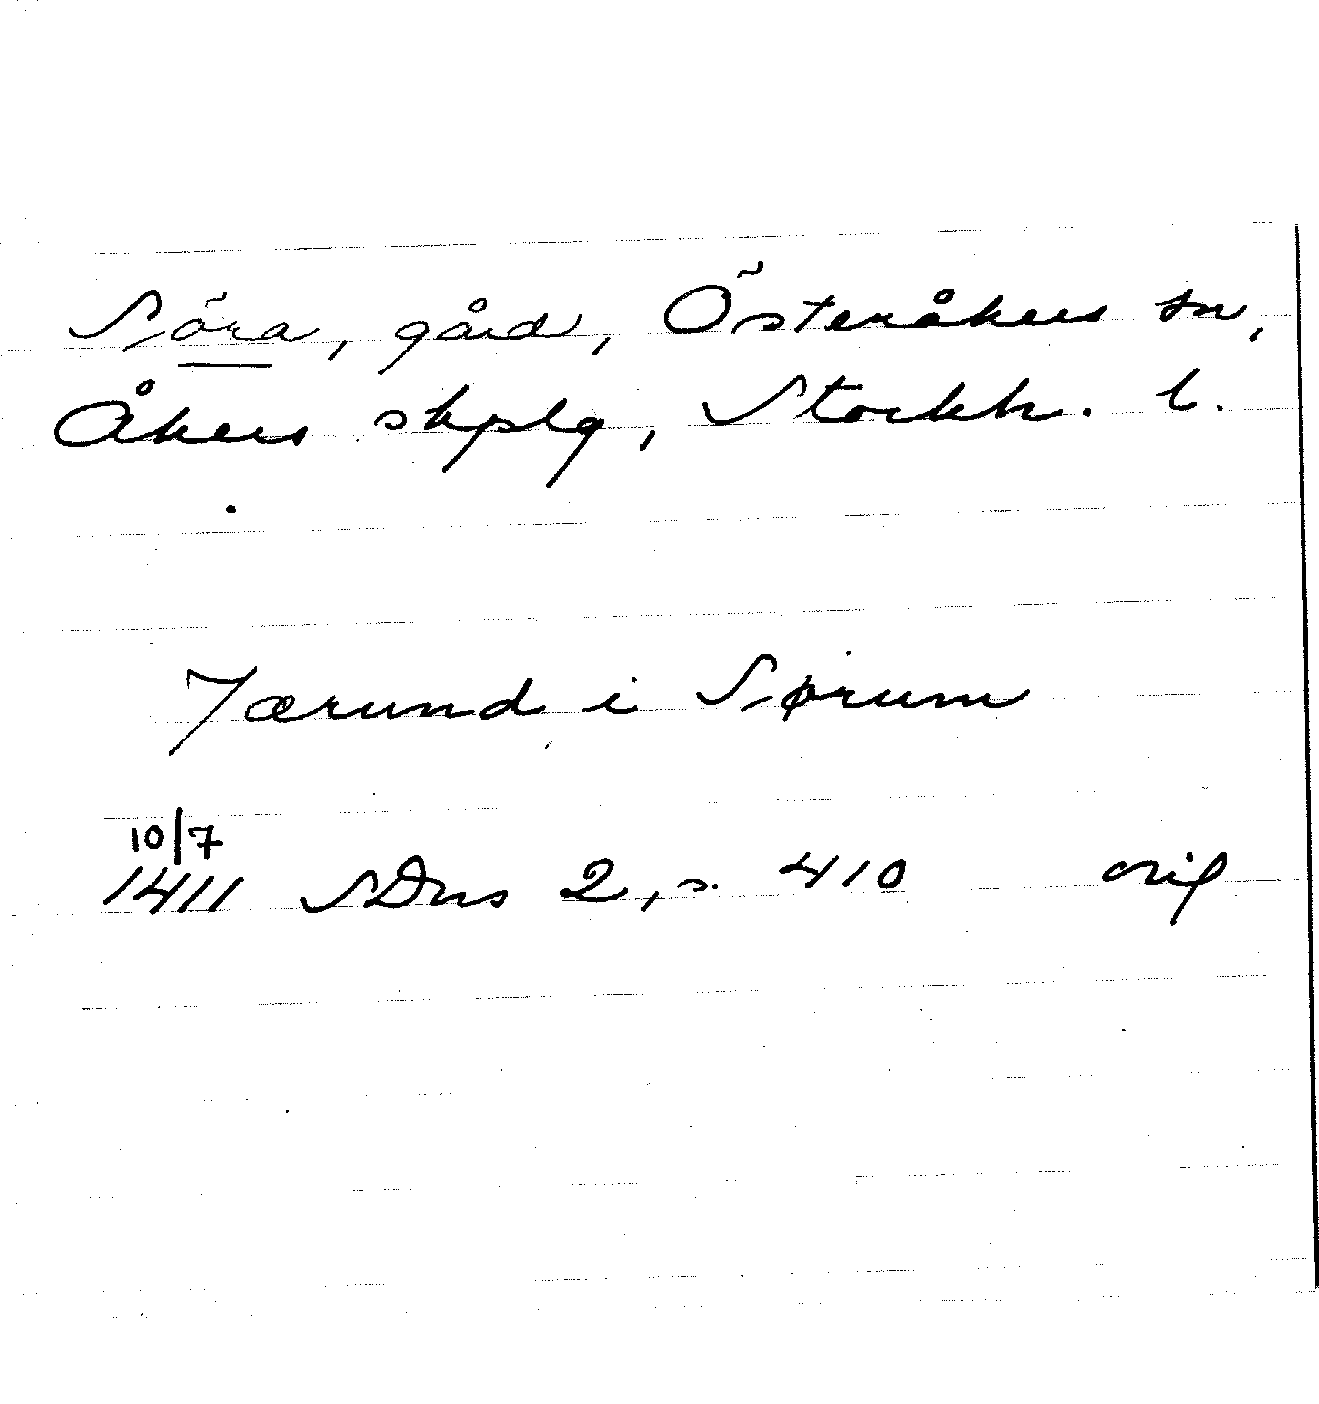 Söra, gård, Österåkers sn,
Åkers skplg, Stockh. l.
Jærund i Sørum
10/7
1411 SDns 2, s. 410 orig